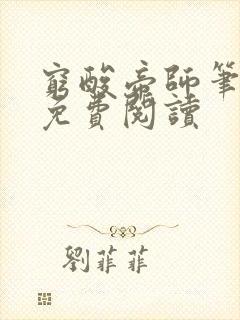 窮酸帝師筆
免費閱讀
劉菲菲